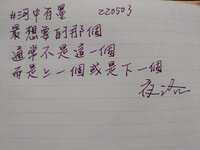 #河中有星 220503
最想要的那個
通常不是這一個
而是上一個或是下一個
夜